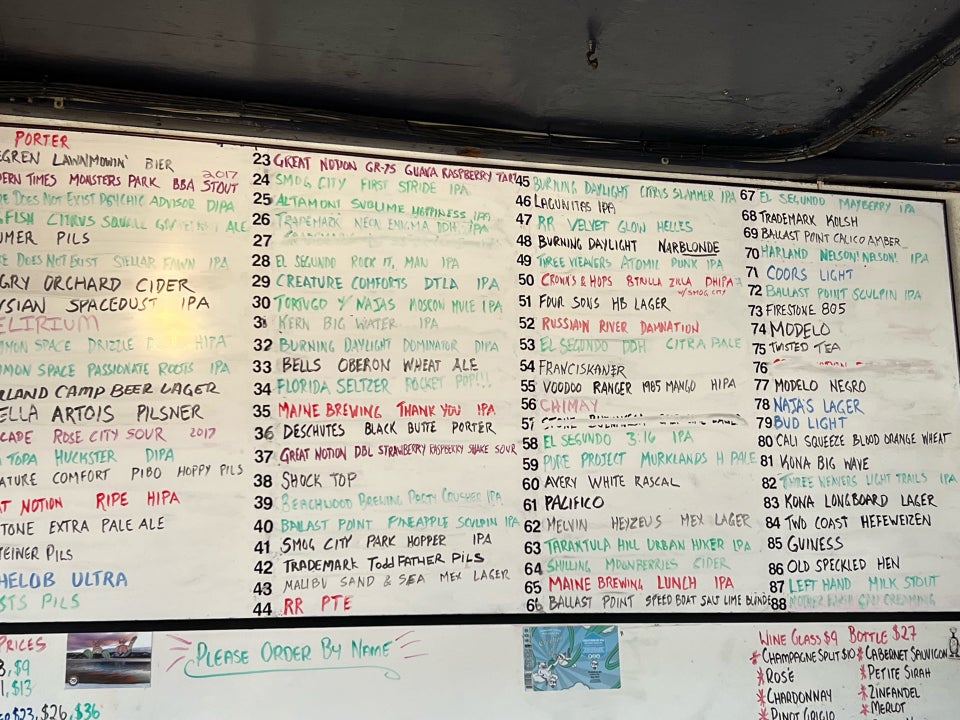 PORTER
EGREN LAWNMOWIN' BIER
ERN TIMES MONSTERS PARK BBA STOUT 2017
RE DOES NOT EXIST PSYCHIC ADVISOR DIPA
FISH CITRUS SQUALL ALE
UMER PILS
E DOES NOT EXIST STELLAR FAWN IPA
GRY ORCHARD CIDER
YSIAN SPACEDUST IPA
ELIRIUM
MON SPACE DRIZZLE HIPA
MON SPACE PASSIONATE ROOTS IPA
RLAND CAMP BEER LAGER
ELLA ARTOIS PILSNER
CADE ROSE CITY SOUR 2017
TOPA HUCKSTER DIPA
ATURE COMFORT PIBO HOPPY PILS
AT NOTION RIPE HIPA
TONE EXTRA PALE ALE
TEINER PILS
HELOB ULTRA
STS PILS
23 GREAT NOTION GR-75 GUAVA RASPBERRY TART
24 SMOG CITY FIRST STRIDE IPA
25 ALTAMONT SUBLIME HOPPINESS IPA
26 TRADEMARK NEON ENIGMA DDH IPA
27
28 EL SEGUNDO ROCK IT, MAN IPA
29 CREATURE COMFORTS DTLA IPA
30 TORTUGO Y NAJAS MOSCOW MULE IPA
31 KERN BIG WATER IPA
32 BURNING DAYLIGHT DOMINATOR DIPA
33 BELLS OBERON WHEAT ALE
34 FLORIDA SELTZER ROCKET POP!!!
35 MAINE BREWING THANK YOU IPA
36 DESCHUTES BLACK BUTTE PORTER
37 GREAT NOTION DBL STRAWBERRY RASPBERRY SHAKE SOUR
38 SHOCK TOP
39 BEACHWOOD BREWING CRUSHER IPA
40 BALLAST POINT PINEAPPLE SCULPIN IPA
41 SMOG CITY PARK HOPPER IPA
42 TRADEMARK Todd FATHER PILS
43 MALIBU SAND & SEA MEX LAGER
44 RR PTE
45 BURNING DAYLIGHT CITRUS SLAMMER IPA
46 LAGUNITAS IPA
47 RR VELVET GLOW HELLES
48 BURNING DAYLIGHT NARBLONDE
49 THREE WEAVERS ATOMIC PUNK IPA
50 CROWNS & HOPS 8TRILLA ZILLA DHIPA
w/ SMOG CITY
51 FOUR SONS HB LAGER
52 RUSSIAN RIVER DAMNATION
53 EL SEGUNDO DDH CITRA PALE
54 FRANCISKANER
55 VOODOO RANGER 1985 MANGO HIPA
56 CHIMAY
57
58 EL SEGUNDO 3:16 IPA
59 PURE PROJECT MURKLANDS H PALE
60 AVERY WHITE RASCAL
61 PACIFICO
62 MELVIN HEYZEUS MEX LAGER
63 TARANTULA HILL URBAN HIKER IPA
64 SHILLING MOONBERRIES CIDER
65 MAINE BREWING LUNCH IPA
66 BALLAST POINT SPEED BOAT SALT LIME BLONDE
67 EL SEGUNDO MAYBERRY IPA
68 TRADEMARK KOLSH
69 BALLAST POINT CALICO AMBER
70 HARLAND NELSON! NELSON! IPA
71 COORS LIGHT
72 BALLAST POINT SCULPIN IPA
73 FIRESTONE 805
74 MODELO
75 TWISTED TEA
76
77 MODELO NEGRO
78 NAJA'S LAGER
79 BUD LIGHT
80 CALI SQUEEZE BLOOD ORANGE WHEAT
81 KONA BIG WAVE
82 THREE WEAVERS LIGHT TRAILS IPA
83 KONA LONGBOARD LAGER
84 TWO COAST HEFEWEIZEN
85 GUINESS
86 OLD SPECKLED HEN
87 LEFT HAND MILK STOUT
88 MOTHER EARTH CALI CREAMING
PRICES
8, $9
1, $13
$23, $26, $36
PLEASE ORDER BY NAME
WINE GLASS $9 BOTTLE $27
CHAMPAGNE SPLIT $10
ROSÉ
CHARDONNAY
PINOT GRIGIO
CABERNET SAUVIGNON
PETITE SIRAH
ZINFANDEL
MERLOT